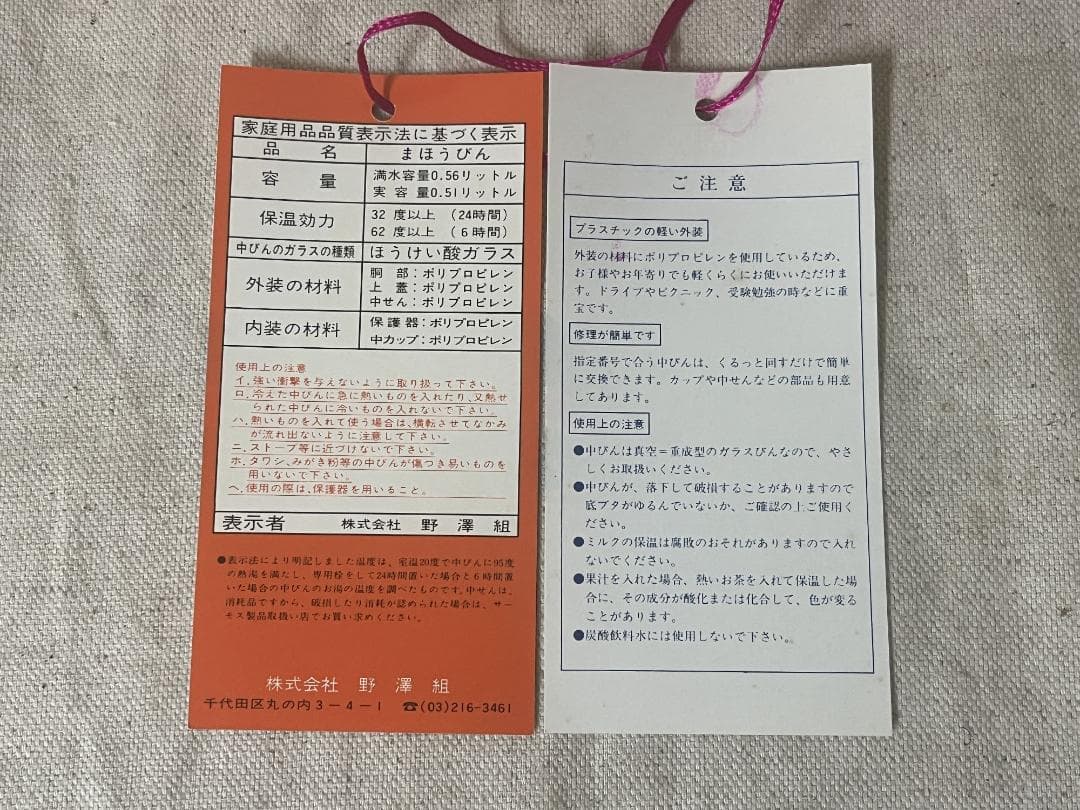 家庭用品品質表示法に基づく表示
品 名 まほうびん
容 量 満水容量0.56リットル
実 容 量0.51リットル
保温効力 32 度以上 (24時間)
62 度以上 (6時間)
中びんのガラスの種類 ほうけい酸ガラス
外装の材料 胴 部：ポリプロピレン
上 蓋：ポリプロピレン
中せん：ポリプロピレン
内装の材料 保 護 器：ポリプロピレン
中カップ：ポリプロピレン
使用上の注意
イ.強い衝撃を与えないように取り扱って下さい。
ロ.冷えた中びんに急に熱いものを入れたり、又熱せ
られた中びんに冷いものを入れないで下さい。
ハ.熱いものを入れて使う場合は、横転させてなかみ
が流れ出ないように注意して下さい。
ニ.ストーブ等に近づけないで下さい。
ホ.タワシ、みがき粉等の中びんが傷つき易いものを
用いないで下さい。
ヘ.使用の際は、保護器を用いること。
表示者 株式会社 野 澤 組
●表示法により明記しました温度は、室温20度で中びんに95度
の熱湯を満たし、専用栓をして24時間置いた場合と6時間置
いた場合の中びんのお湯の温度を調べたものです。中せんは、
消耗品ですから、破損したり消耗が認められた場合は、サー
モス製品取扱い店でお買い求めください。
株式会社 野 澤 組
千代田区丸の内3-4-1 ☎(03)216-3461
ご注意
プラスチックの軽い外装
外装の材料にポリプロピレンを使用しているため、
お子様やお年寄りでも軽くらくにお使いいただけま
す。ドライブやピクニック、受験勉強の時などに重
宝です。
修理が簡単です
指定番号で合う中びんは、くるっと回すだけで簡単
に交換できます。カップや中せんなどの部品も用意
してあります。
使用上の注意
●中びんは真空＝重成型のガラスびんなので、やさ
しくお取扱いください。
●中びんが、落下して破損することがありますので
底ブタがゆるんでいないか、ご確認の上ご使用く
ださい。
●ミルクの保温は腐敗のおそれがありますので入れ
ないでください。
●果汁を入れた場合、熱いお茶を入れて保温した場
合に、その成分が酸化または化合して、色が変る
ことがあります。
●炭酸飲料水には使用しないで下さい。